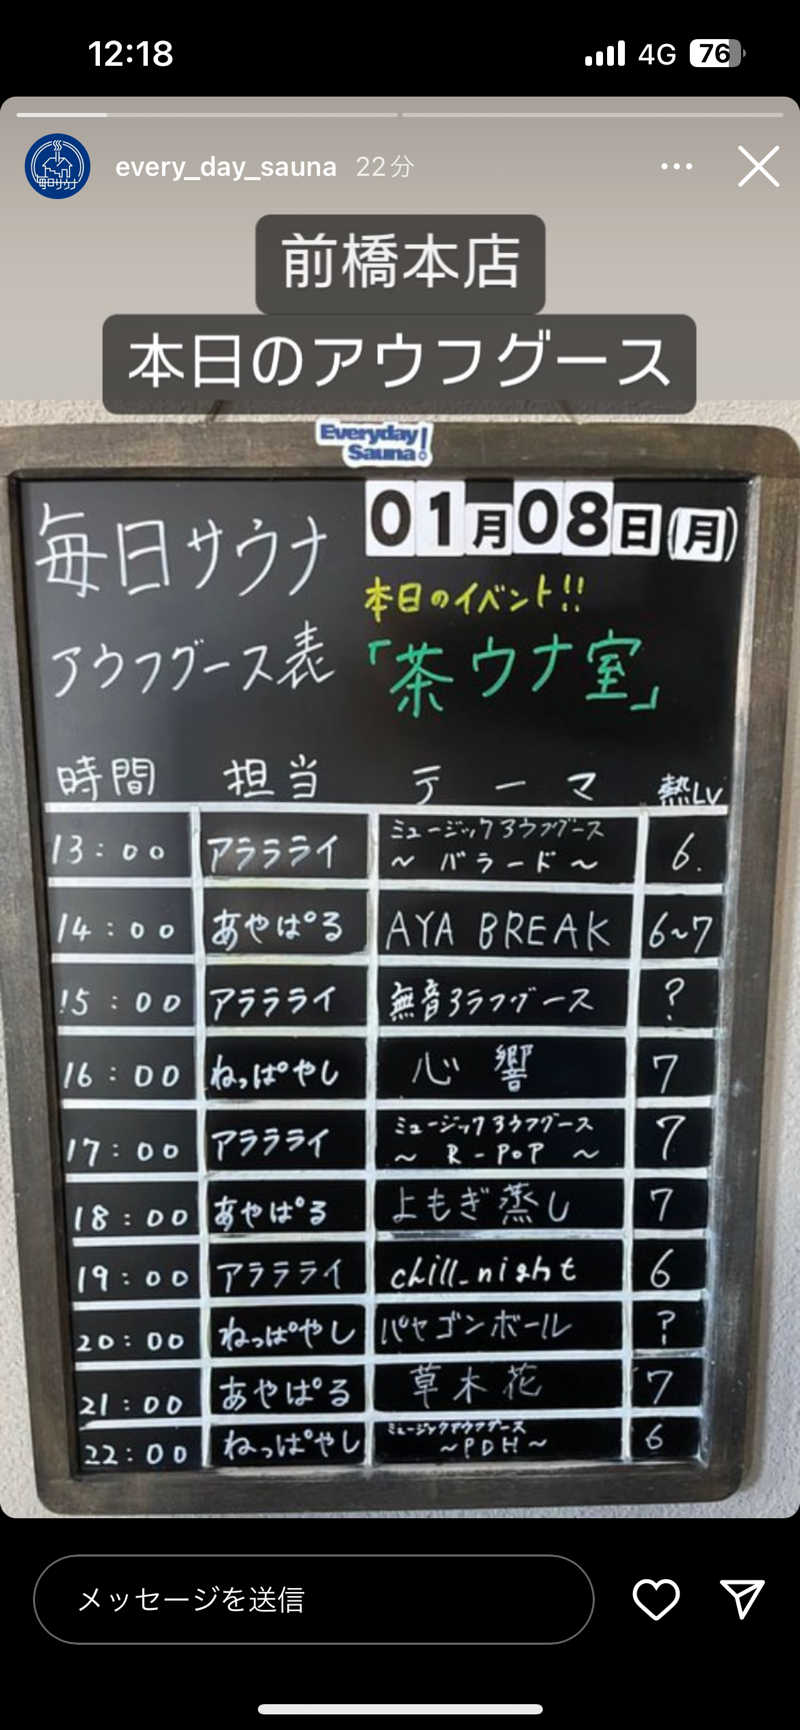 12:18 4G 76
毎日サウナ
every_day_sauna 22分
前橋本店
本日のアウフグース
Everyday!
Sauna
毎日サウナ
01月08日(月)
本日のイベント!!
アウフグース表
「茶ウナ室」
時間 担当 テーマ 熱Lv
13:00 アラララライ ミュージックアウフグース
～バラード～ 6.
14:00 あやぱる AYA BREAK 6~7
15:00 アララライ 無音アラフグース ?
16:00 ねっぱやし 心響 7
17:00 アララライ ミュージックアウフグース
～ R-POP ～ 7
18:00 あやぱる よもぎ蒸し 7
19:00 アララライ chill_night 6
20:00 ねっぱやし パセゴンボール ?
21:00 あやぱる 草木花 7
22:00 ねっぱやし ミュージックアウフグース
～PDH～ 6
メッセージを送信